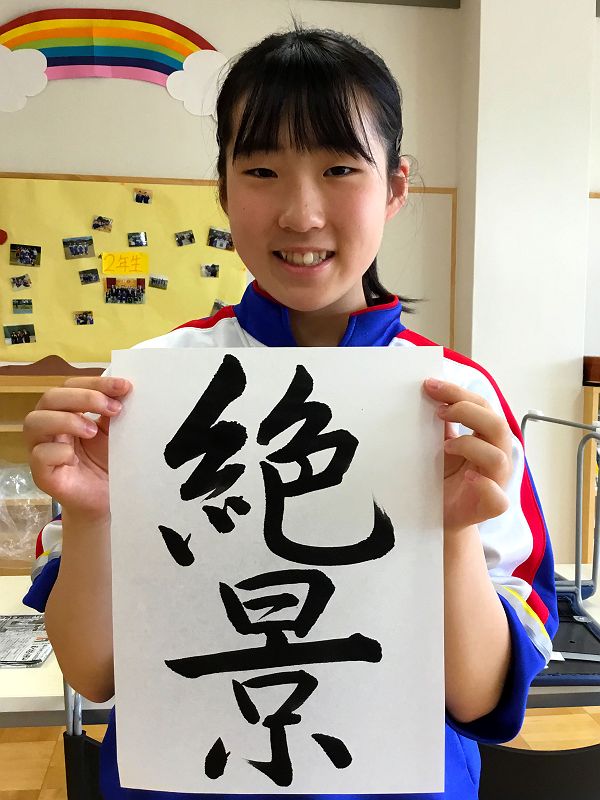 2年生
絶景